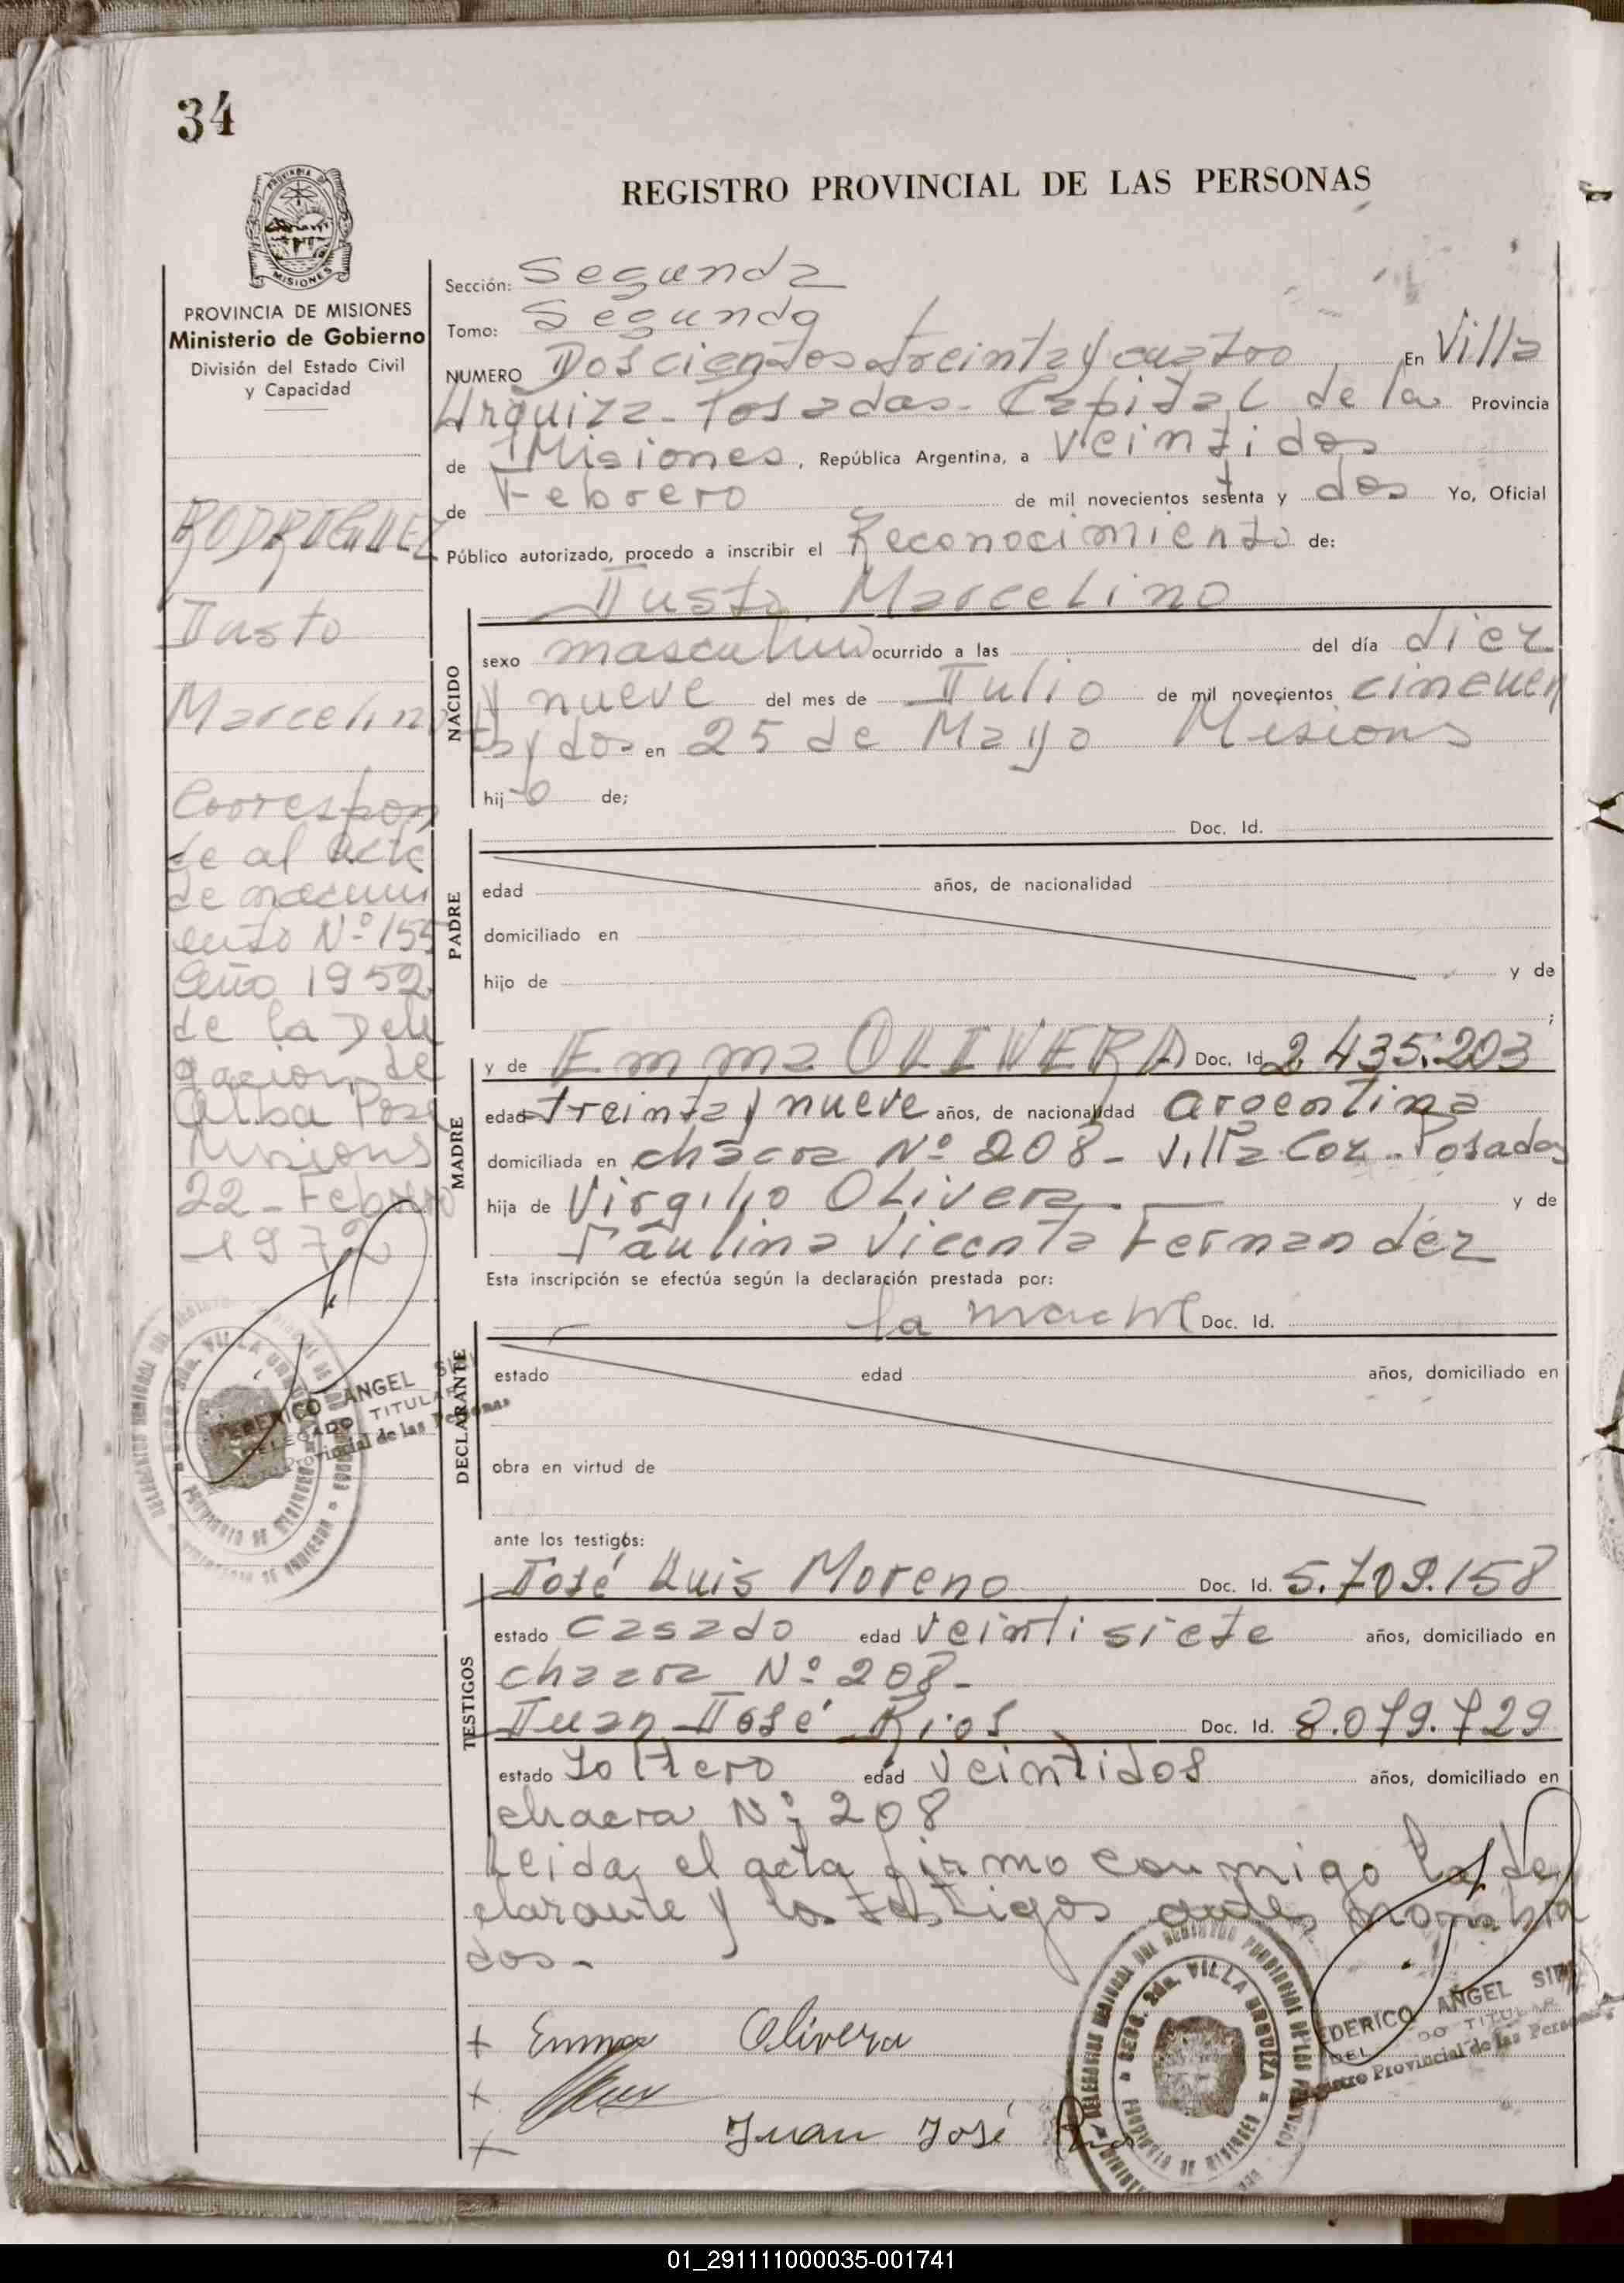 34
REGISTRO PROVINCIAL DE LAS PERSONAS
MISIONES
PROVINCIA DE MISIONES
Ministerio de Gobierno
División del Estado Civil
y Capacidad
RODRIGUEZ
Justo
Marcelino
Correspon
de al acta
de nacimi
ento Nº 155
Año 1952
de la Dele
gacion de
Alba Posse
Misiones
22 - Febrero
1972
Sección: Segunda
Tomo: Segundo
NUMERO Doscientos treinta y cuatro En Villa
Urquiza - Posadas - Capital de la Provincia
de Misiones, República Argentina, a veintidos
de Febrero de mil novecientos setenta y dos Yo, Oficial
Público autorizado, procedo a inscribir el Reconocimiento de:
Justo Marcelino
NACIDO
sexo masculino ocurrido a las del día diez
y nueve del mes de Julio de mil novecientos cincuen
ta y dos en 25 de Mayo Misiones
hijo de;
Doc. Id.
PADRE
edad años, de nacionalidad
domiciliado en
hijo de y de
;
MADRE
y de Emma OLIVERA Doc. Id. 2.435.203
edad treinta y nueve años, de nacionalidad argentina
domiciliada en chacra Nº 208 - Villa Coz - Posadas
hija de Virgilio Olivera y de
Paulina Vicenta Fernandez
Esta inscripción se efectúa según la declaración prestada por:
la madre Doc. Id.
DECLARANTE
estado edad años, domiciliado en
obra en virtud de
ante los testigos:
TESTIGOS
José Luis Moreno Doc. Id. 5.709.158
estado casado edad veintisiete años, domiciliado en
chacra Nº 208 -
Juan José Rios Doc. Id. 8.079.729
estado soltero edad veintidos años, domiciliado en
chacra Nº 208
Leida el acta firmo conmigo la de
clarante y los testigos antes nombra
dos -
+ Emma Olivera
+
+ Juan José Rios
FEDERICO ANGEL
DELEGADO TITULAR
Provincial de las Personas
SECC. 2da. VILLA URQUIZA
PROVINCIA DE MISIONES
FEDERICO ANGEL
TITULAR
Registro Provincial de las Personas
01_291111000035-001741